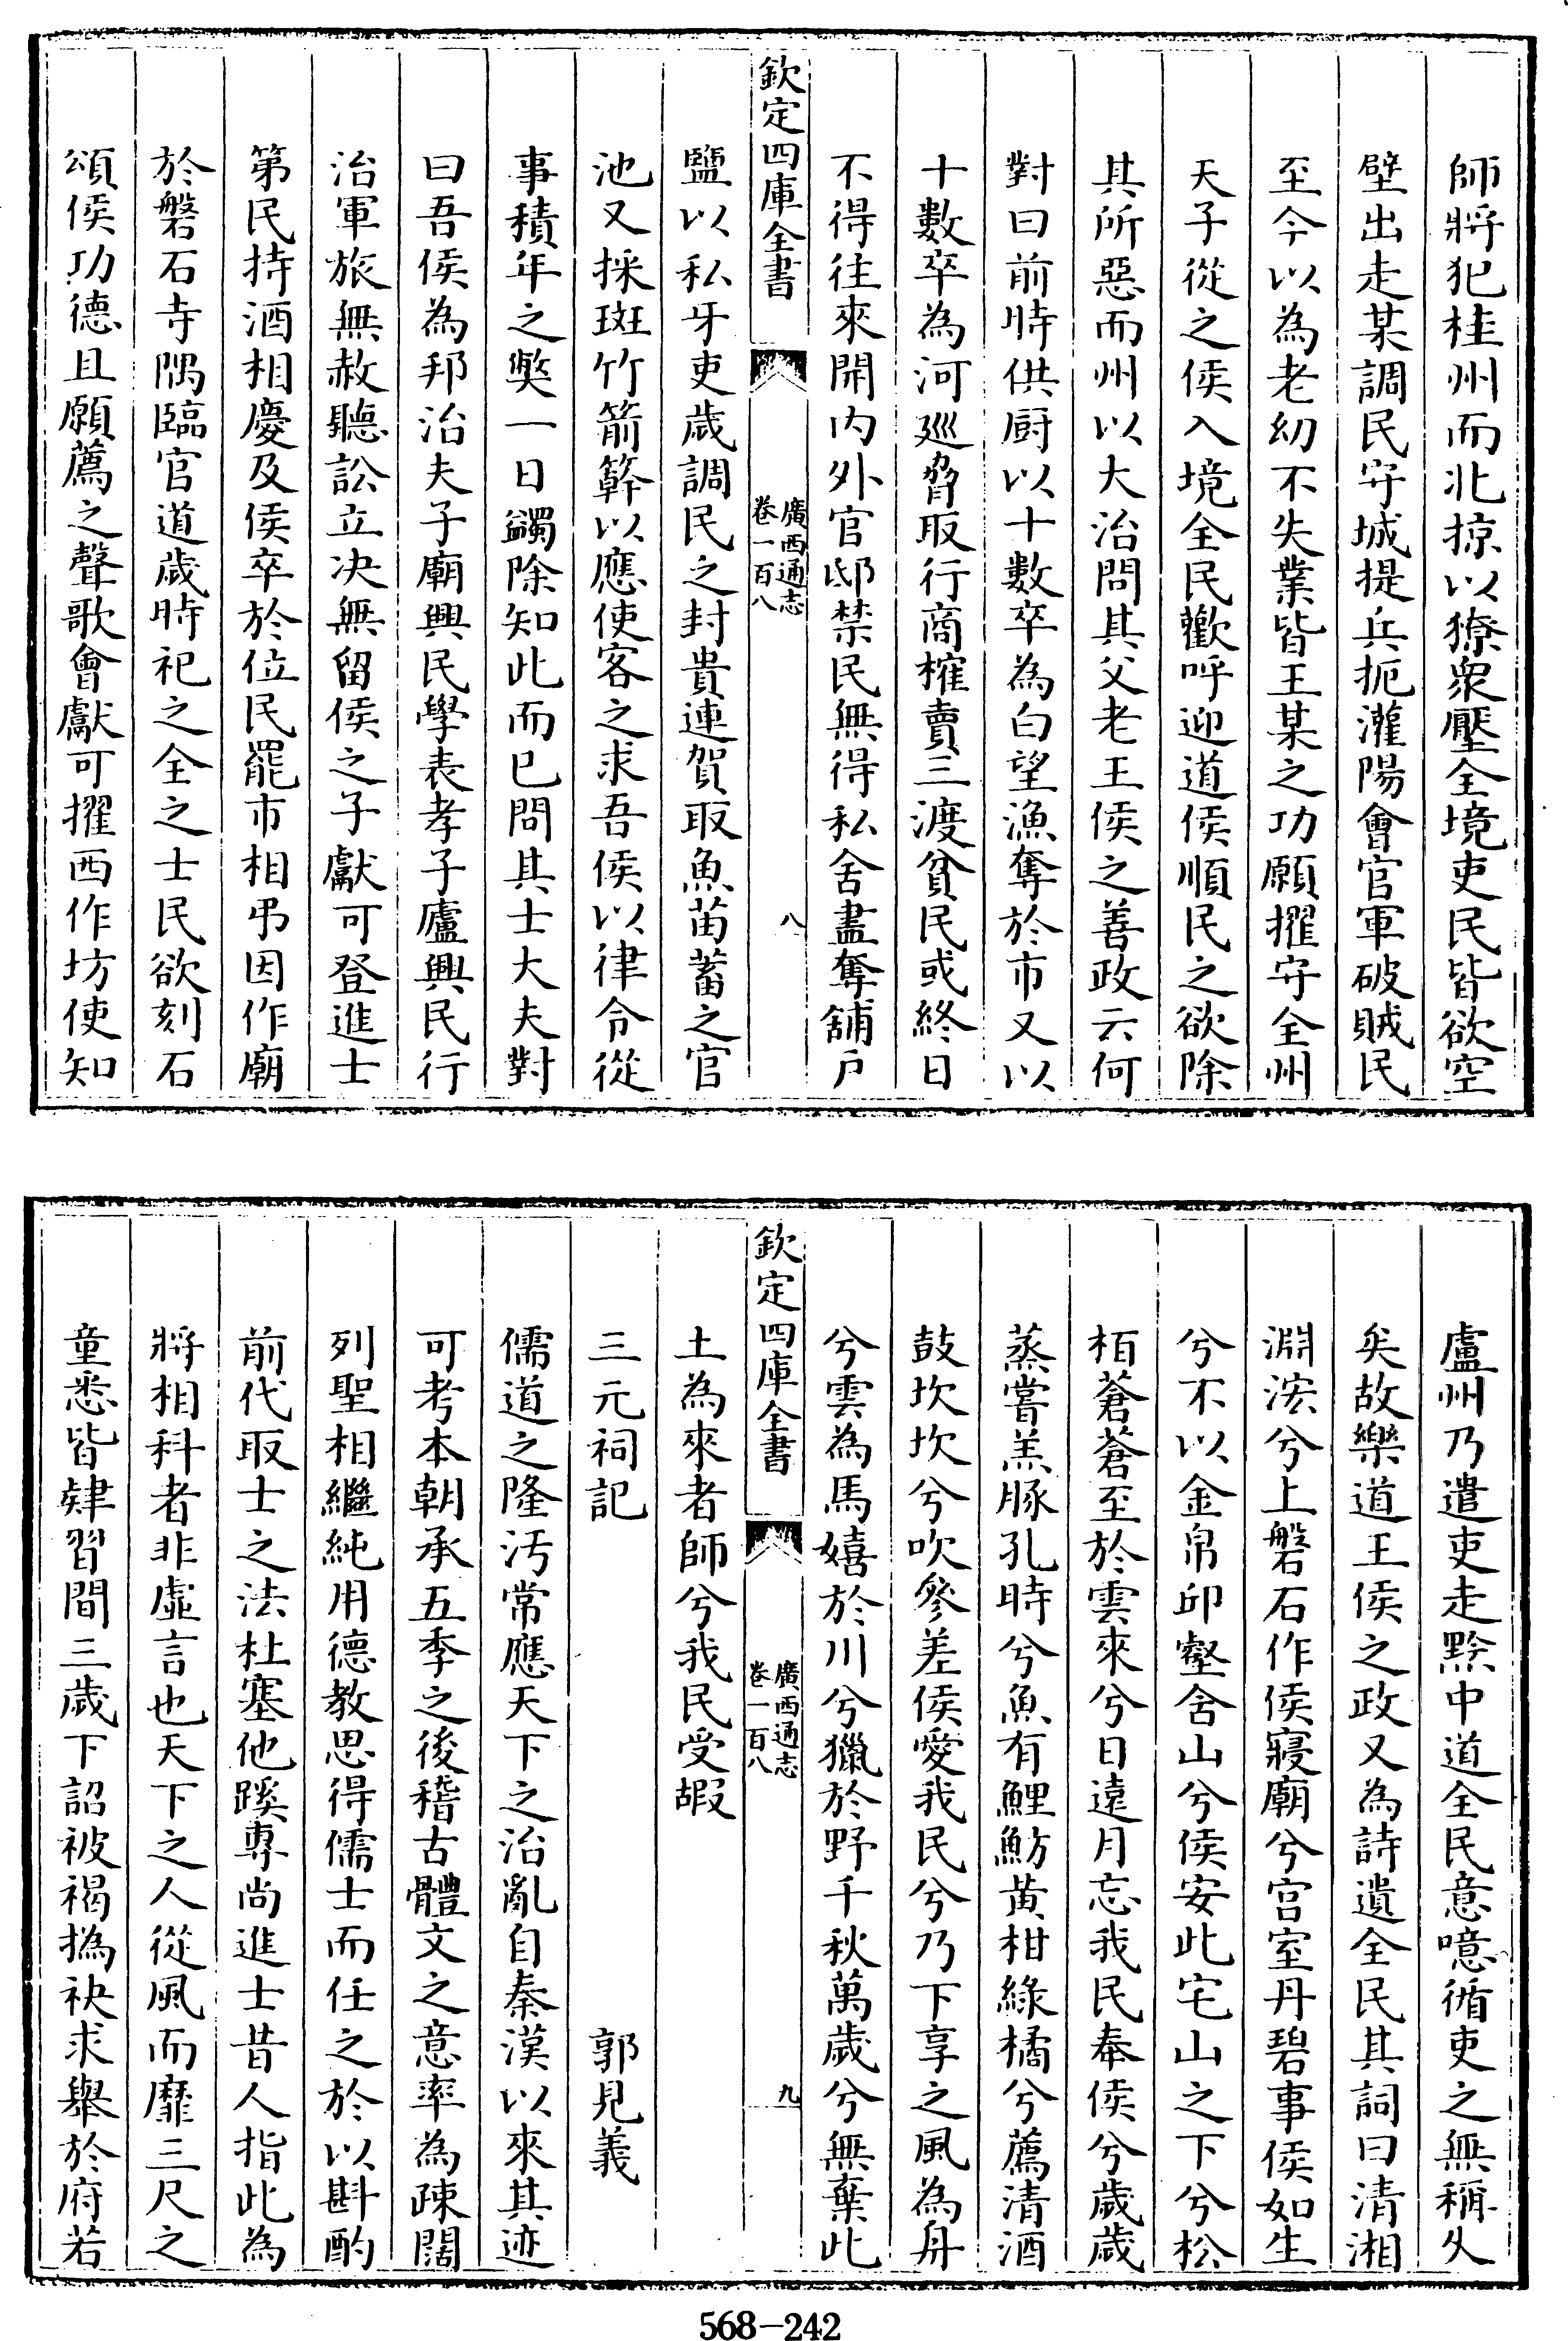 師將犯桂州而北掠以獠衆壓全境吏民皆欲空
壁出走某調民守城提兵扼灌陽會官軍破賊民
至今以為老幼不失業皆王某之功願擢守全州
天子從之侯入境全民歡呼迎道侯順民之欲除
其所惡而州以大治問其父老王侯之善政云何
對曰前時供厨以十數卒為白望漁奪於市又以
十數卒為河廵脅取行商榷賣三渡貧民或終日
不得往來閑内外官邸禁民無得私舍盡奪舖戶
欽定四庫全書
廣西通志
卷一百八
八
鹽以私牙吏歲調民之封貴連賀取魚苗蓄之官
池又採斑竹箭簳以應使客之求吾侯以律令從
事積年之獘一日蠲除知此而已問其士大夫對
曰吾侯為邦治夫子廟興民學表孝子廬興民行
治軍旅無赦聽訟立决無留侯之子獻可登進士
第民持酒相慶及侯卒於位民罷市相弔因作廟
於磐石寺隅臨官道歲時祀之全之士民欲刻石
頌侯功德且願薦之聲歌會獻可擢西作坊使知
盧州乃遣吏走黔中道全民意噫循吏之無稱乆
矣故樂道王侯之政又為詩遺全民其詞曰清湘
淵浤兮上磐石作侯寢廟兮宫室丹碧事侯如生
兮不以金帛卭壑舍山兮侯安此宅山之下兮松
栢蒼蒼至於雲來兮日遠月忘我民奉侯兮歲歲
蒸嘗羔豚孔時兮魚有鯉魴黄柑綠橘兮薦清酒
鼓坎坎兮吹參差侯愛我民兮乃下享之風為舟
兮雲為馬嬉於川兮獵於野千秋萬歲兮無棄此
欽定四庫全書
廣西通志
卷一百八
九
土為來者師兮我民受嘏
三元祠記 郭見義
儒道之隆汚常應天下之治亂自秦漢以來其迹
可考本朝承五季之後稽古體文之意率為疎闊
列聖相繼純用德教思得儒士而任之於以斟酌
前代取士之法杜塞他蹊專尚進士昔人指此為
將相科者非虛言也天下之人從風而靡三尺之
童悉皆肄習間三歲下詔被褐撝袂求舉於府若
568-242